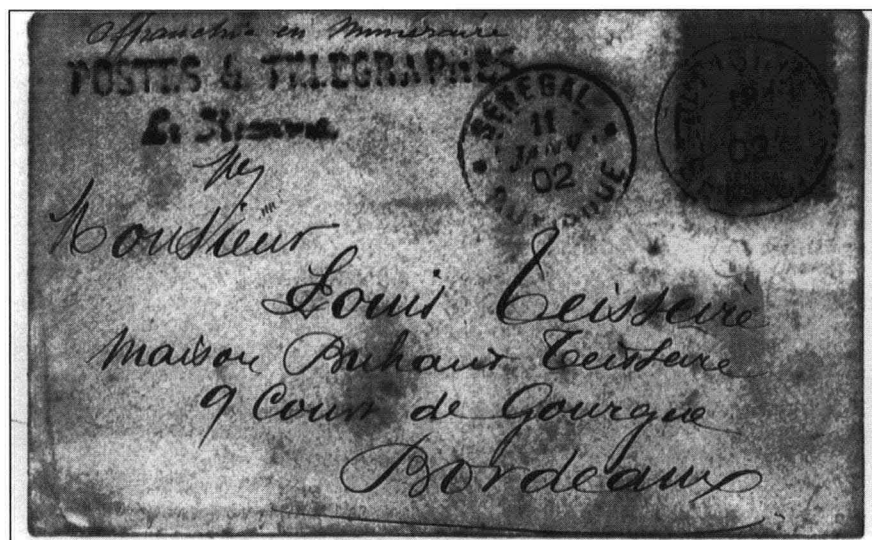 Affranchie en Numéraire
POSTES & TÉLÉGRAPHES
Le Receveur
SÉNÉGAL
11
JANV.
02
RUFISQUE
02
SÉNÉGAL
Monsieur
Louis Teisseire
Maison Buhant Teisseire
9 Cours de Gourgue
Bordeaux